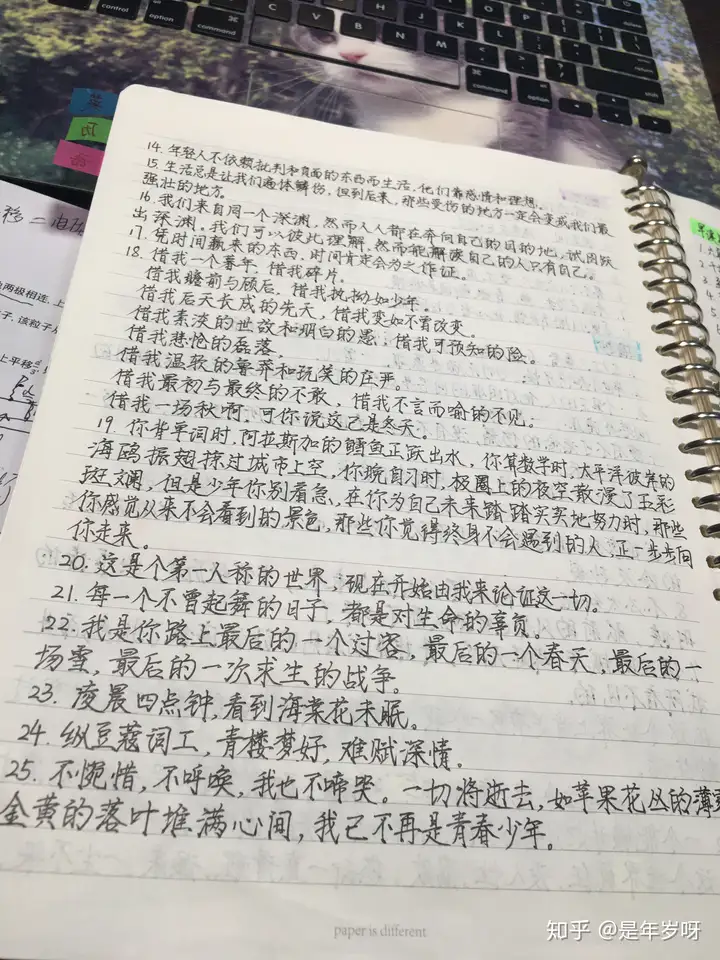 14. 年轻人不依赖批判和负面的东西而生活, 他们靠感情和理想.
15. 生活总是让我们遍体鳞伤, 但到后来, 那些受伤的地方一定会变成我们最
强壮的地方。
16. 我们来自同一个深渊, 然而人人都在奔向自己的目的地, 试图跃
出深渊。我们可以彼此理解, 然而能解读自己的人只有自己。
17. 凭时间赢来的东西, 时间肯定会为之作证。
18. 借我一个暮年, 借我碎片。
借我瞻前与顾后, 借我执拗如少年。
借我后天长成的先天, 借我变如不曾改变。
借我素淡的世故和明白的愚, 借我可预知的险。
借我悲怆的磊落,
借我温软的鲁莽和玩笑的庄严。
借我最初与最终的不敢, 借我不言而喻的不见。
借我一场秋啊, 可你说这已是冬天。
19. 你背单词时, 阿拉斯加的鳕鱼正跃出水, 你算数学时, 太平洋彼岸的
海鸥振翅掠过城市上空, 你晚自习时, 极圈上的夜空散漫了五彩
斑斓, 但是少年你别着急, 在你为自己未来踏踏实实地努力时, 那些
你感觉从来不会看到的景色, 那些你觉得终身不会遇到的人, 正一步步向
你走来。
20. 这是个第一人称的世界, 现在开始由我来论证这一切。
21. 每一个不曾起舞的日子, 都是对生命的辜负。
22. 我是你路上最后的一个过客, 最后的一个春天, 最后的一
场雪, 最后的一次求生的战争。
23. 凌晨四点钟, 看到海棠花未眠。
24. 纵豆蔻词工, 青楼梦好, 难赋深情。
25. 不惋惜, 不呼唤, 我也不啼哭。一切将逝去, 如苹果花丛的薄
金黄的落叶堆满心间, 我已不再是青春少年。
paper is different
知乎 @是年岁呀
control
option
command
command
option
return
shift
Z X C V B N M